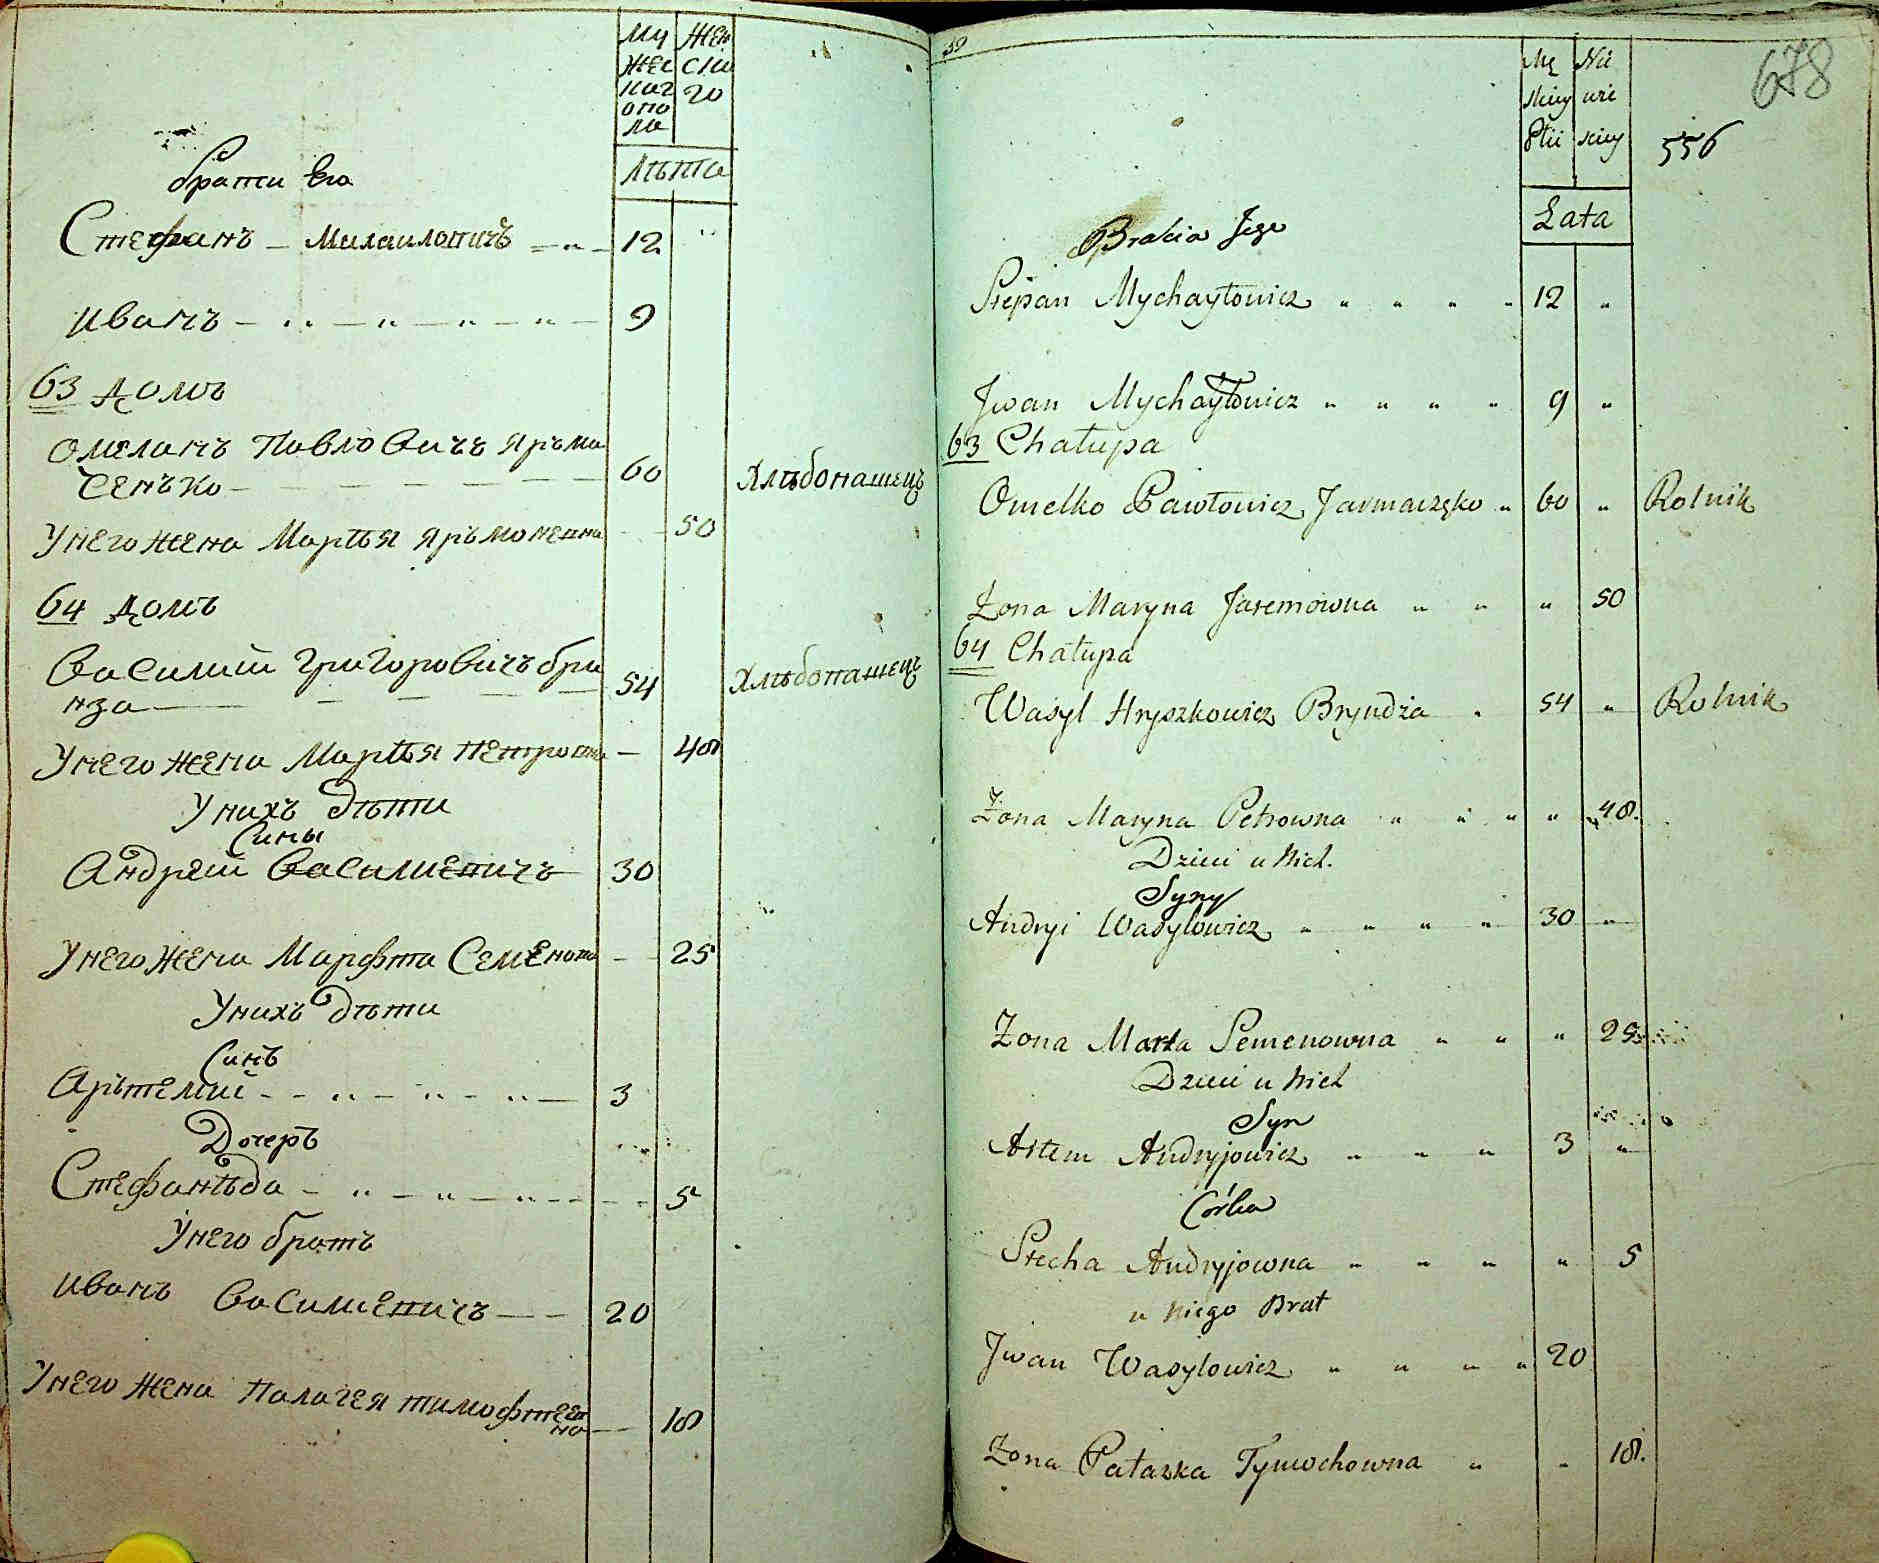 Му
жес
каг
опо
ла
Жен
ска
го
Лѣта
брати Его
Стефанъ - Михаиловичъ 12
Иванъ 9
63 домъ
Омеланъ Павловичъ Яръма
ченъко 60 Хлѣбопашецъ
Унего жена Маръя Яръмовевна 50
64 домъ
Василий Григоровичъ бри
нза 54 Хлѣбопашецъ
Унего жена Маръя Петровна 48
Унихъ дѣти
Сины
Андрей Василиевичъ 30
Унего жена Марфта Семенова 25
Унихъ дѣти
Синъ
Арътемий 3
Дочеръ
Стефанѣда 5
Унего братъ
Иванъ Василиевичъ 20
Унего жена Палагея тимофтеев
на 18
39
678
556
Mę
skiey
Płci
Nie
wie
sciey
Lata
Bracia Jego
Stepan Mychayłowicz 12
Jwan Mychayłowicz 9
63 Chałupa
Omelko Pawłowicz Jarmaczęko 60 Rolnik
Żona Maryna Jaremowna 50
64 Chałupa
Wasyl Hryszkowicz Bryndza 54 Rolnik
Żona Maryna Petrowna 48.
Dzieci u Nich.
Syny
Andryi Wasylowicz 30
Żona Marta Semenowna 25
Dzieci u Nich
Syn
Artem Andryjowicz 3
Córka
Stecha Andryjowna 5
u Niego Brat
Jwan Wasylowicz 20
Żona Pałazka Tymochowna 18.